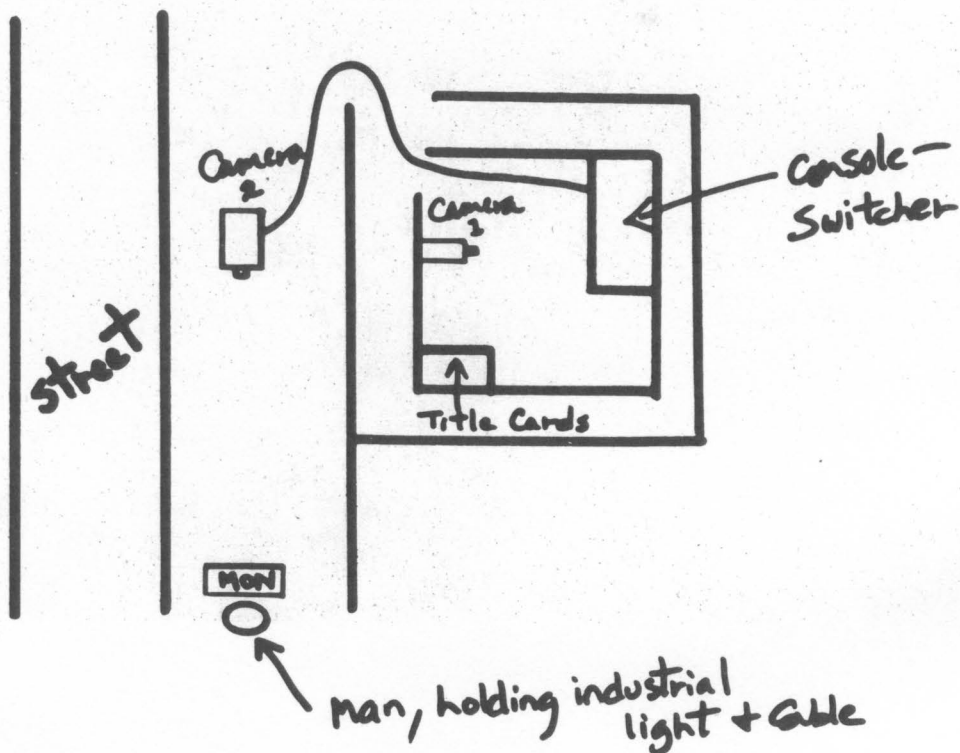 Camera
2
Camera
1
Console —
Switcher
street
Title Cards
MON
Man, holding industrial
light + Cable